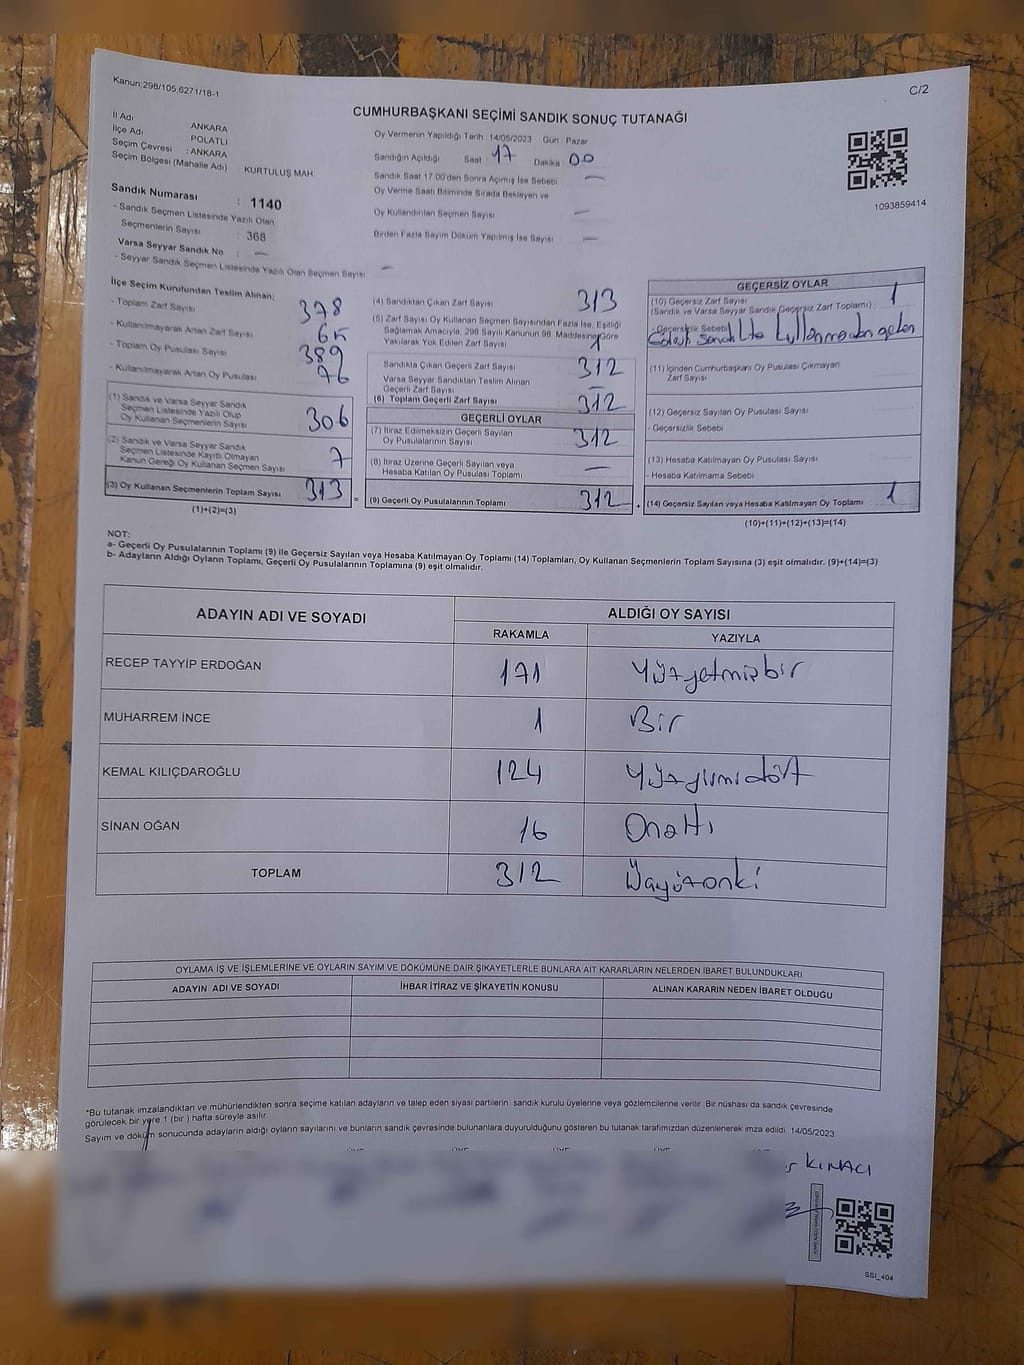 Kanun:298/105,6271/18-1
C/2
CUMHURBAŞKANI SEÇİMİ SANDIK SONUÇ TUTANAĞI
İl Adı ANKARA
İlçe Adı POLATLI
Seçim Çevresi : ANKARA
Seçim Bölgesi (Mahalle Adı) KURTULUŞ MAH.
Sandık Numarası : 1140
- Sandık Seçmen Listesinde Yazılı Olan
Seçmenlerin Sayısı : 368
Varsa Seyyar Sandık No : —
- Seyyar Sandık Seçmen Listesinde Yazılı Olan Seçmen Sayısı —
Oy Vermenin Yapıldığı Tarih 14/05/2023 Gün : Pazar
Sandığın Açıldığı Saat : 17 Dakika 00
Sandık Saat 17:00'den Sonra Açılmış İse Sebebi —
Oy Verme Saati Bitiminde Sırada Bekleyen ve
Oy Kullandırılan Seçmen Sayısı —
Birden Fazla Sayım Döküm Yapılmış İse Sayısı —
1093859414
İlçe Seçim Kurulundan Teslim Alınan;
- Toplam Zarf Sayısı 378
- Kullanılmayarak Artan Zarf Sayısı 65
- Toplam Oy Pusulası Sayısı 389
- Kullanılmayarak Artan Oy Pusulası 76
(1) Sandık ve Varsa Seyyar Sandık
Seçmen Listesinde Yazılı Olup
Oy Kullanan Seçmenlerin Sayısı 306
(2) Sandık ve Varsa Seyyar Sandık
Seçmen Listesinde Kayıtlı Olmayan
Kanun Gereği Oy Kullanan Seçmen Sayısı 7
(3) Oy Kullanan Seçmenlerin Toplam Sayısı 313 =
(1)+(2)=(3)
(4) Sandıktan Çıkan Zarf Sayısı 313
(5) Zarf Sayısı Oy Kullanan Seçmen Sayısından Fazla İse, Eşitliği
Sağlamak Amacıyla, 298 Sayılı Kanunun 98. Maddesine Göre
Yakılarak Yok Edilen Zarf Sayısı 1
Sandıkta Çıkan Geçerli Zarf Sayısı 312
Varsa Seyyar Sandıktan Teslim Alınan
Geçerli Zarf Sayısı —
(6) Toplam Geçerli Zarf Sayısı 312
GEÇERLİ OYLAR
(7) İtiraz Edilmeksizin Geçerli Sayılan
Oy Pusulalarının Sayısı 312
(8) İtiraz Üzerine Geçerli Sayılan veya
Hesaba Katılan Oy Pusulası Toplamı —
(9) Geçerli Oy Pusulalarının Toplamı 312
GEÇERSİZ OYLAR
(10) Geçersiz Zarf Sayısı 1
(Sandık ve Varsa Seyyar Sandık Geçersiz Zarf Toplamı)
- Geçersizlik Sebebi
kullanmadan gelen
(11) İçinden Cumhurbaşkanı Oy Pusulası Çıkmayan
Zarf Sayısı
(12) Geçersiz Sayılan Oy Pusulası Sayısı
- Geçersizlik Sebebi
(13) Hesaba Katılmayan Oy Pusulası Sayısı
- Hesaba Katılmama Sebebi
(14) Geçersiz Sayılan veya Hesaba Katılmayan Oy Toplamı 1
(10)+(11)+(12)+(13)=(14)
NOT:
a- Geçerli Oy Pusulalarının Toplamı (9) ile Geçersiz Sayılan veya Hesaba Katılmayan Oy Toplamı (14) Toplamları, Oy Kullanan Seçmenlerin Toplam Sayısına (3) eşit olmalıdır. (9)+(14)=(3)
b- Adayların Aldığı Oyların Toplamı, Geçerli Oy Pusulalarının Toplamına (9) eşit olmalıdır.
ADAYIN ADI VE SOYADI
ALDIĞI OY SAYISI
RAKAMLA YAZIYLA
RECEP TAYYİP ERDOĞAN 171 Yüzyetmişbir
MUHARREM İNCE 1 Bir
KEMAL KILIÇDAROĞLU 124 Yüzyirmidört
SİNAN OĞAN 16 Onaltı
TOPLAM 312 Üçyüzoniki
OYLAMA İŞ VE İŞLEMLERİNE VE OYLARIN SAYIM VE DÖKÜMÜNE DAİR ŞİKAYETLERLE BUNLARA AİT KARARLARIN NELERDEN İBARET BULUNDUKLARI
ADAYIN ADI VE SOYADI İHBAR İTİRAZ VE ŞİKAYETİN KONUSU ALINAN KARARIN NEDEN İBARET OLDUĞU
*Bu tutanak imzalandıktan ve mühürlendikten sonra seçime katılan adayların ve talep eden siyasi partilerin sandık kurulu üyelerine veya gözlemcilerine verilir. Bir nüshası da sandık çevresinde
görülecek bir yere 1 (bir) hafta süreyle asılır.
Sayım ve döküm sonucunda adayların aldığı oyların sayılarını ve bunların sandık çevresinde bulunanlara duyurulduğunu gösteren bu tutanak tarafımızdan düzenlenerek imza edildi. 14/05/2023
KINACI
SSİ_404